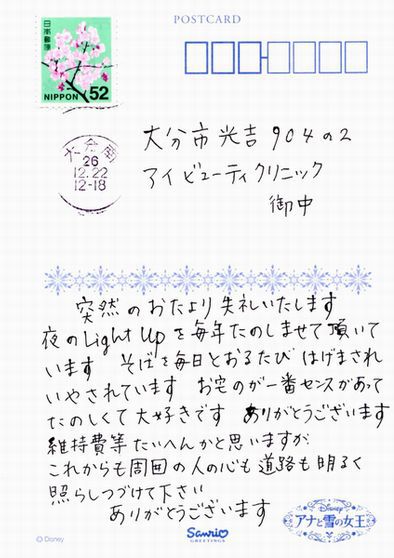 POSTCARD
日本郵便
NIPPON 52
大分
26
12.22
12-18
大分市光吉904の2
アイビューティクリニック
御中
突然のおたより失礼いたします
夜のLight Upを毎年たのしませて頂いて
います そばを毎日とおるたび はげまされ
いやされています お宅のが一番センスがあって
たのしくて大好きです ありがとうございます
維持費等たいへんかと思いますが、
これからも周囲の人の心も道路も明るく
照らしつづけて下さい
ありがとうございます
© Disney
Sanrio
GREETINGS
Disney
アナと雪の女王